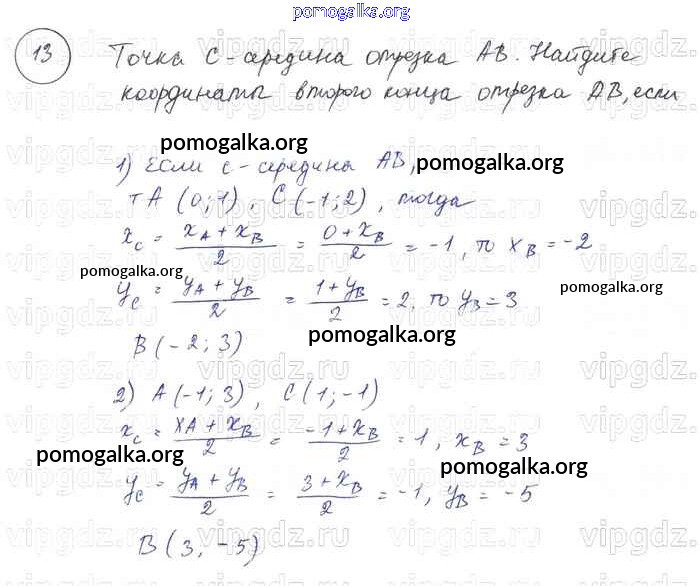 pomogalka.org
13 Точка С - середина отрезка АВ. Найдите
координаты второго конца отрезка АВ, если
pomogalka.org
1) Если с - середина АВ, pomogalka.org
т А (0; 1), С (-1; 2), тогда
x_C = (x_A + x_B)/2 = (0 + x_B)/2 = -1, то x_B = -2
pomogalka.org
y_C = (y_A + y_B)/2 = (1 + y_B)/2 = 2, то y_B = 3
pomogalka.org
pomogalka.org
В (-2; 3)
2) А (-1; 3), С (1; -1)
x_C = (x_A + x_B)/2 = (-1 + x_B)/2 = 1, x_B = 3
pomogalka.org
pomogalka.org
y_C = (y_A + y_B)/2 = (3 + x_B)/2 = -1, y_B = -5
В (3, -5)
vipgdz.ru